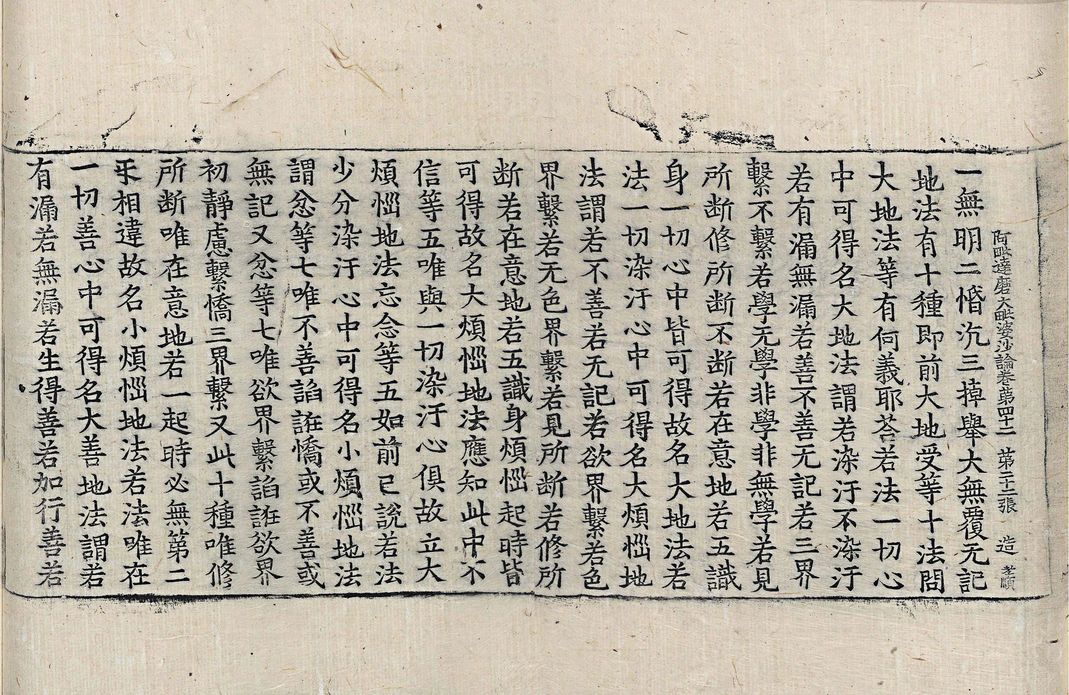 阿毗達磨大毗婆沙論卷第四十二 第十二張 造 順
一無明二惛沉三掉舉大無覆无記
地法有十種即前大地受等十法問
大地法等有何義耶荅若法一切心
中可得名大地法謂若染汙不染汙
若有漏無漏若善不善无記若三界
繫不繫若學无學非學非無學若見
所断修所断不断若在意地若五識
身一切心中皆可得故名大地法若
法一切染汙心中可得名大煩惱地
法謂若不善若无記若欲界繫若色
界繫若无色界繫若見所断若修所
断若在意地若五識身煩惱起時皆
可得故名大煩惱地法應知此中不
信等五唯與一切染汙心俱故立大
煩惱地法忘念等五如前已說若法
少分染汙心中可得名小煩惱地法
謂忿等七唯不善諂誑憍或不善或
無記又忿等七唯欲界繫諂誑欲界
初靜慮繫憍三界繫又此十種唯修
所断唯在意地若一起時必無第二
㸦相違故名小煩惱地法若法唯在
一切善心中可得名大善地法謂若
有漏若無漏若生得善若加行善若